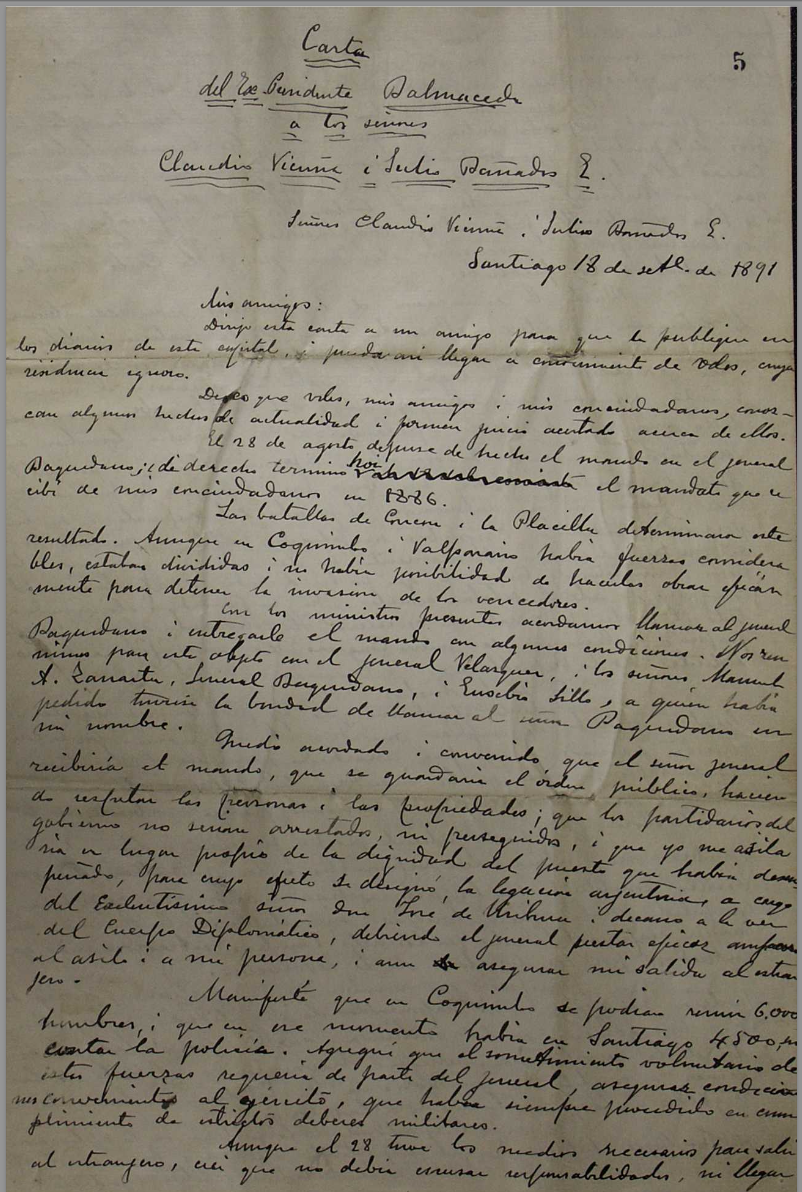 Carta
5
del Ex Presidente Balmaceda
a los señores
Claudio Vicuña i Julio Bañados E.
Señores Claudio Vicuña i Julio Bañados E.
Santiago 18 de set. de 1891
Mis amigos:
Dirijo esta carta a un amigo para que la publique en
los diarios de esta capital, i pueda asi llegar a conocimiento de Vdes, cuya
residencia ignoro.
Deseo que Vdes, mis amigos i mis conciudadanos, conoz-
can algunos hechos de actualidad i formen juicio acertado acerca de ellos.
El 28 de agosto depuse de hecho el mando en el jeneral
Baquedano, i de derecho termina hoi el mandato que re
cibi de mis conciudadanos en 1886.
Las batallas de Concon i la Placilla determinaron este
resultado. Aunque en Coquimbo i Valparaiso habia fuerzas considera
bles, estaban divididas i no habia posibilidad de hacerlas obrar eficaz
mente para detener la invasion de los vencedores.
Con los ministros presentes acordamos llamar al jeneral
Baquedano i entregarle el mando con algunas condiciones. Nos reu
nimos para este objeto con el jeneral Velasquez, i los señores Manuel
A. Zañartu, Jeneral Baquedano, i Eusebio Lillo, a quien habia
pedido tuviese la bondad de llamar al señor Baquedano en
mi nombre.
Quedó acordado i convenido, que el señor jeneral
recibiria el mando, que se guardaria el órden público, hacien
do respetar las personas i las propiedades; que los partidarios del
gobierno no serian arrestados, ni perseguidos, i que yo me asila
ria en lugar propio de la dignidad del puesto que habia desem
peñado, para cuyo efecto se designó la legacion arjentina, a cargo
del Excelentísimo señor don José de Uriburu i decano a la vez
del Cuerpo Diplomático, debiendo el jeneral prestar eficaz amparo
al asilo i a mi persona, i aun asegurar mi salida al estran
jero.
Manifesté que en Coquimbo se podian reunir 6.000
hombres, i que en ese momento habia en Santiago 4500, sin
contar la policia. Agregué que el sometimiento voluntario de
estas fuerzas requeria de parte del jeneral, asegurar condicio
nes convenientes al ejército, que habia siempre procedido en cum
plimiento de estrictos deberes militares.
Aunque el 28 tuve los medios necesarios para salir
al estrangero, crei que no debia escusar responsabilidades, ni llegar